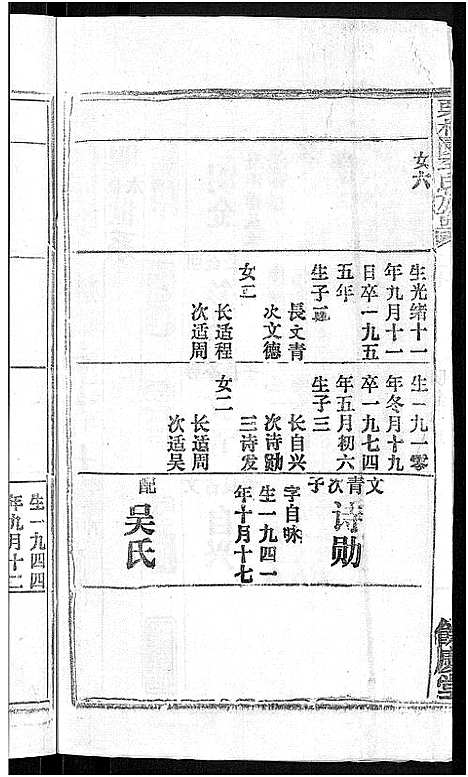 女六
生光绪十一
年九月十一
日卒一九五
五年
生子二
長文青
次文德
女二
长适程
次适周
生一九一零
年冬月十九
卒一九七四
年五月初六
生子三
长自兴
次诗勋
三诗发
女二
长适周
次适吴
文青次子
诗勋
字自咏
生一九四一
年十月十七
配
吴氏
生一九四四
年九月十二